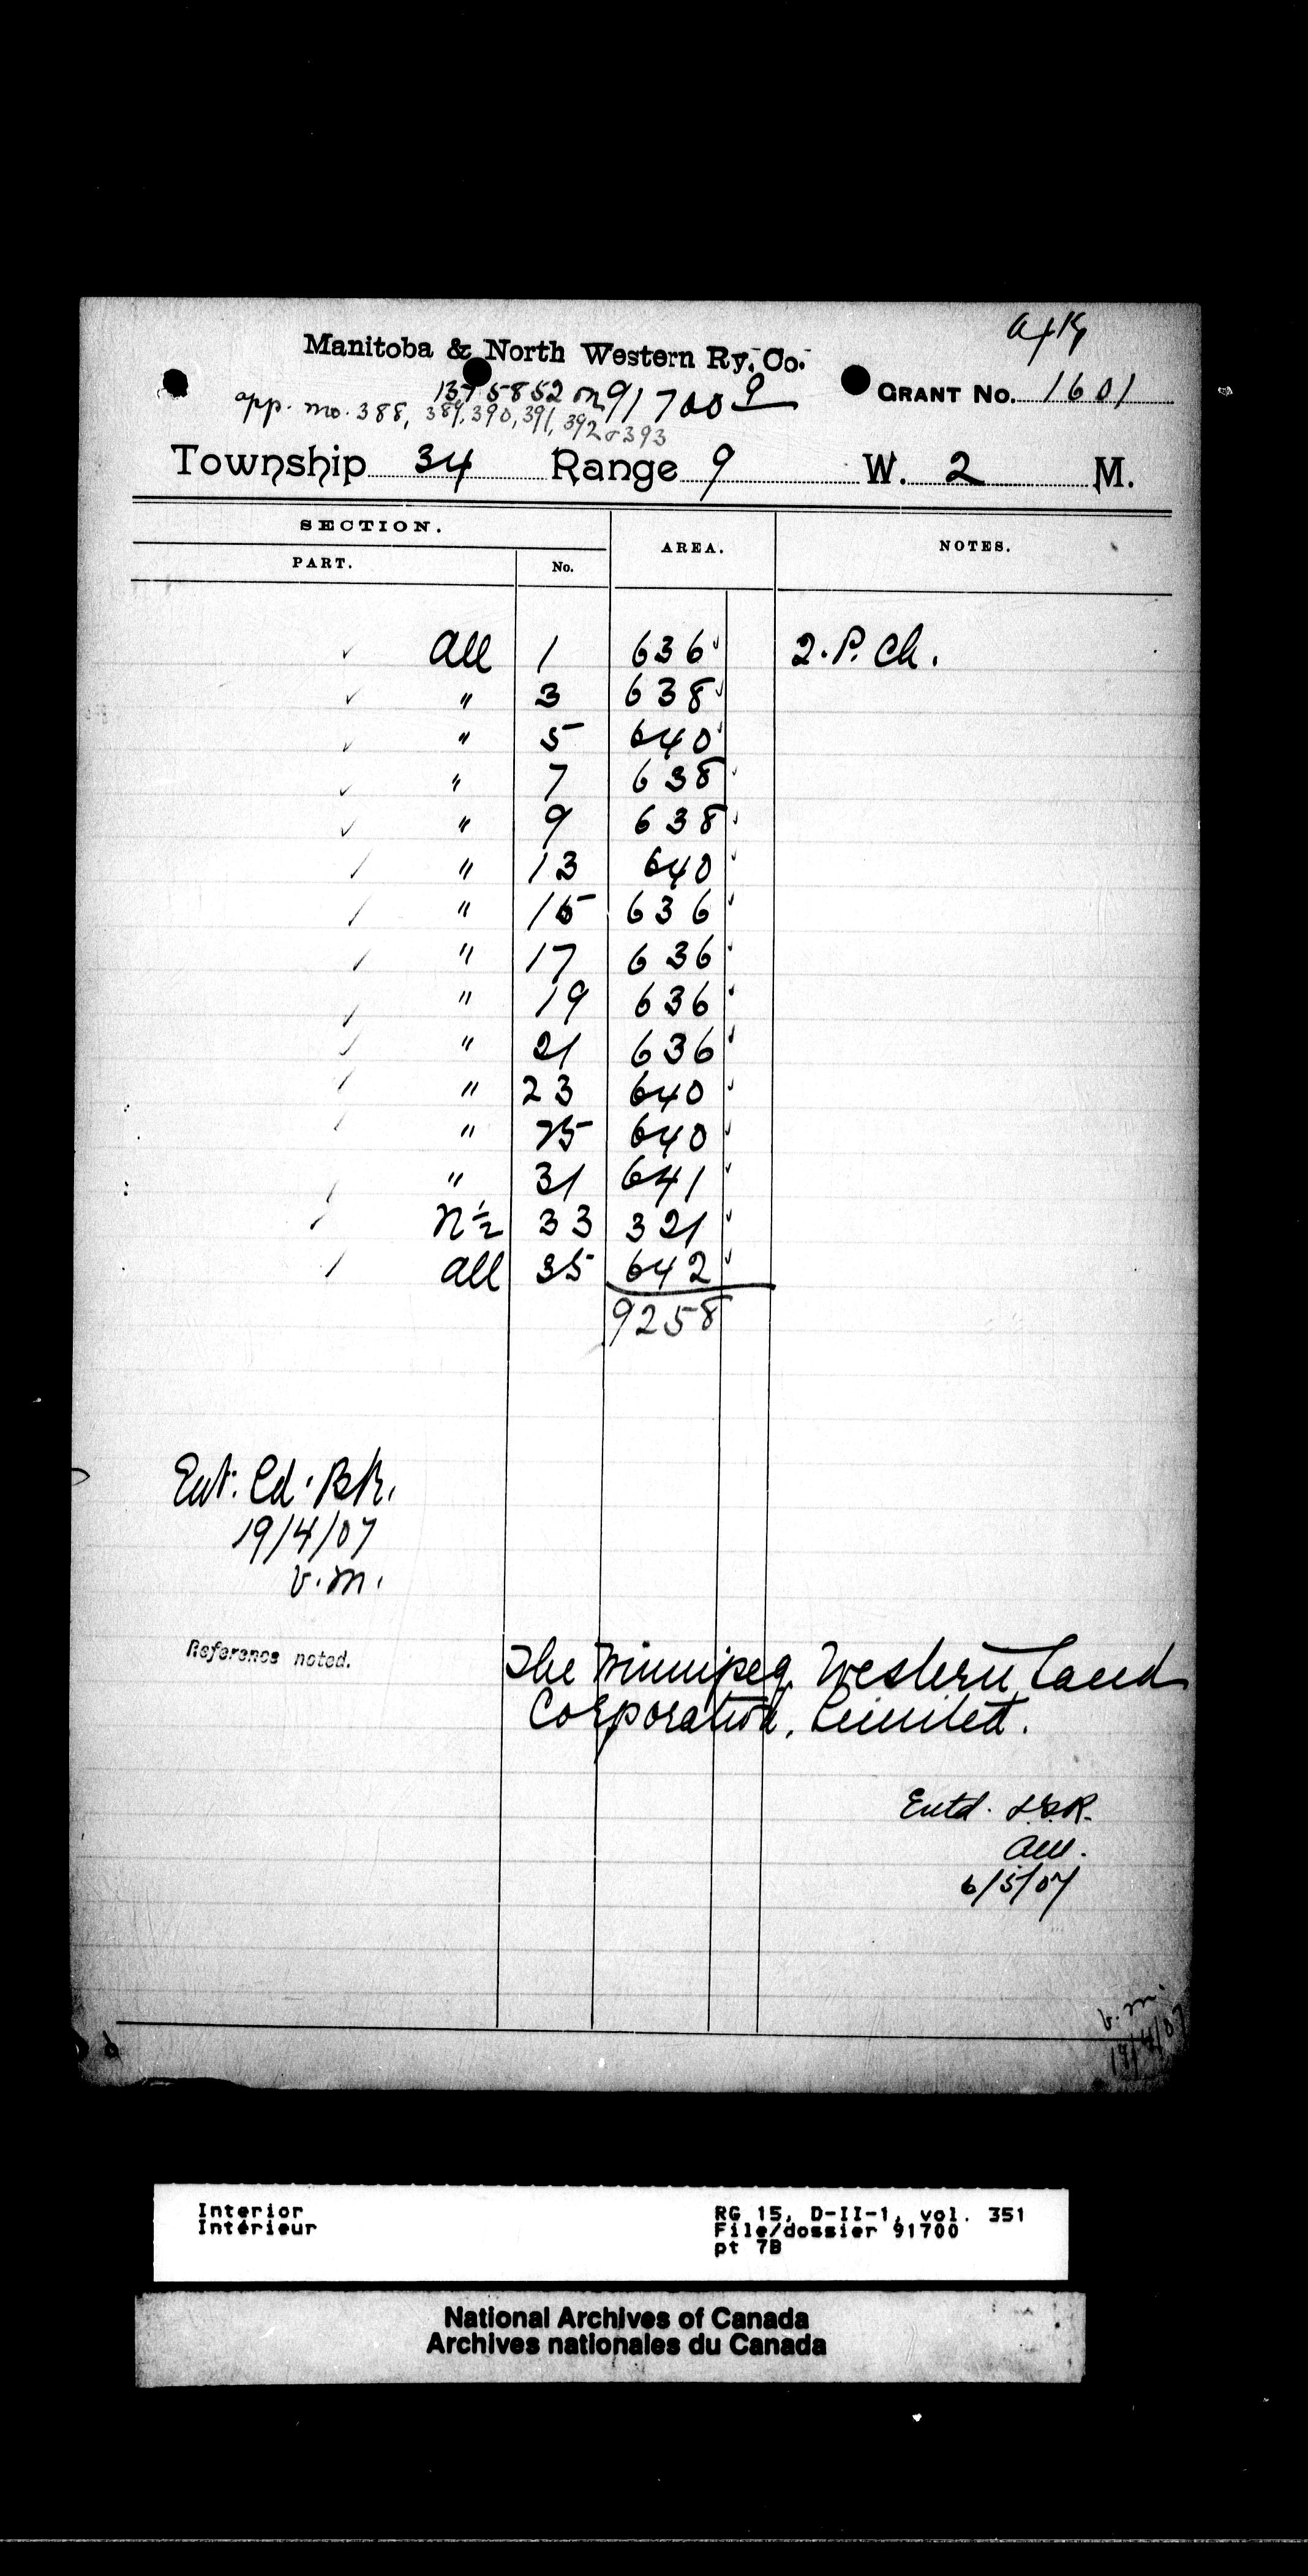 Manitoba & North Western Ry. Co.
GRANT No. 1601
1375852 on 91700 9
app. no. 388, 389, 390, 391, 392 & 393
Township 34 Range 9 W. 2 M.
SECTION.
PART. No. AREA. NOTES.
All 1 636 2. P. Ch.
" 3 638
" 5 640
" 7 638
" 9 638
" 13 640
" 15 636
" 17 636
" 19 636
" 21 636
" 23 640
" 25 640
" 31 641
N ½ 33 321
All 35 642
9258
Ent. Cd. Bk.
19/4/07
V. M.
Reference noted.
The Winnipeg Western Land
Corporation, Limited.
Entd. L.G.R.
6/5/07
V. M.
Interior
Intérieur
RG 15, D-II-1, vol. 351
File/dossier 91700
pt 7B
National Archives of Canada
Archives nationales du Canada